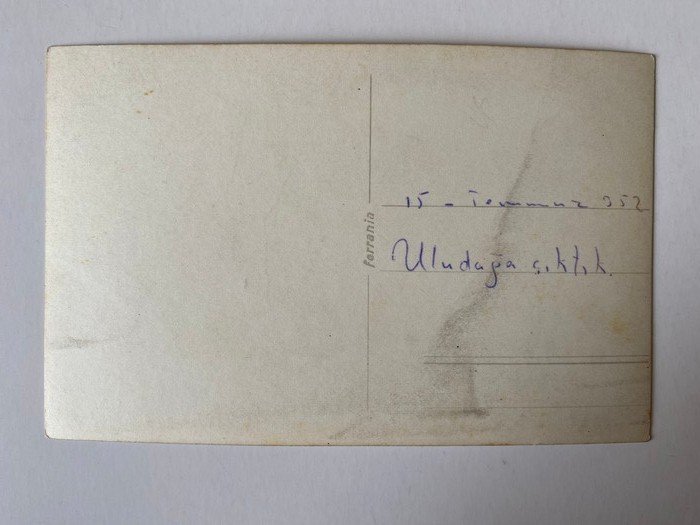 Ferrania
15 - Temmuz 952
Uludağa çıktık.